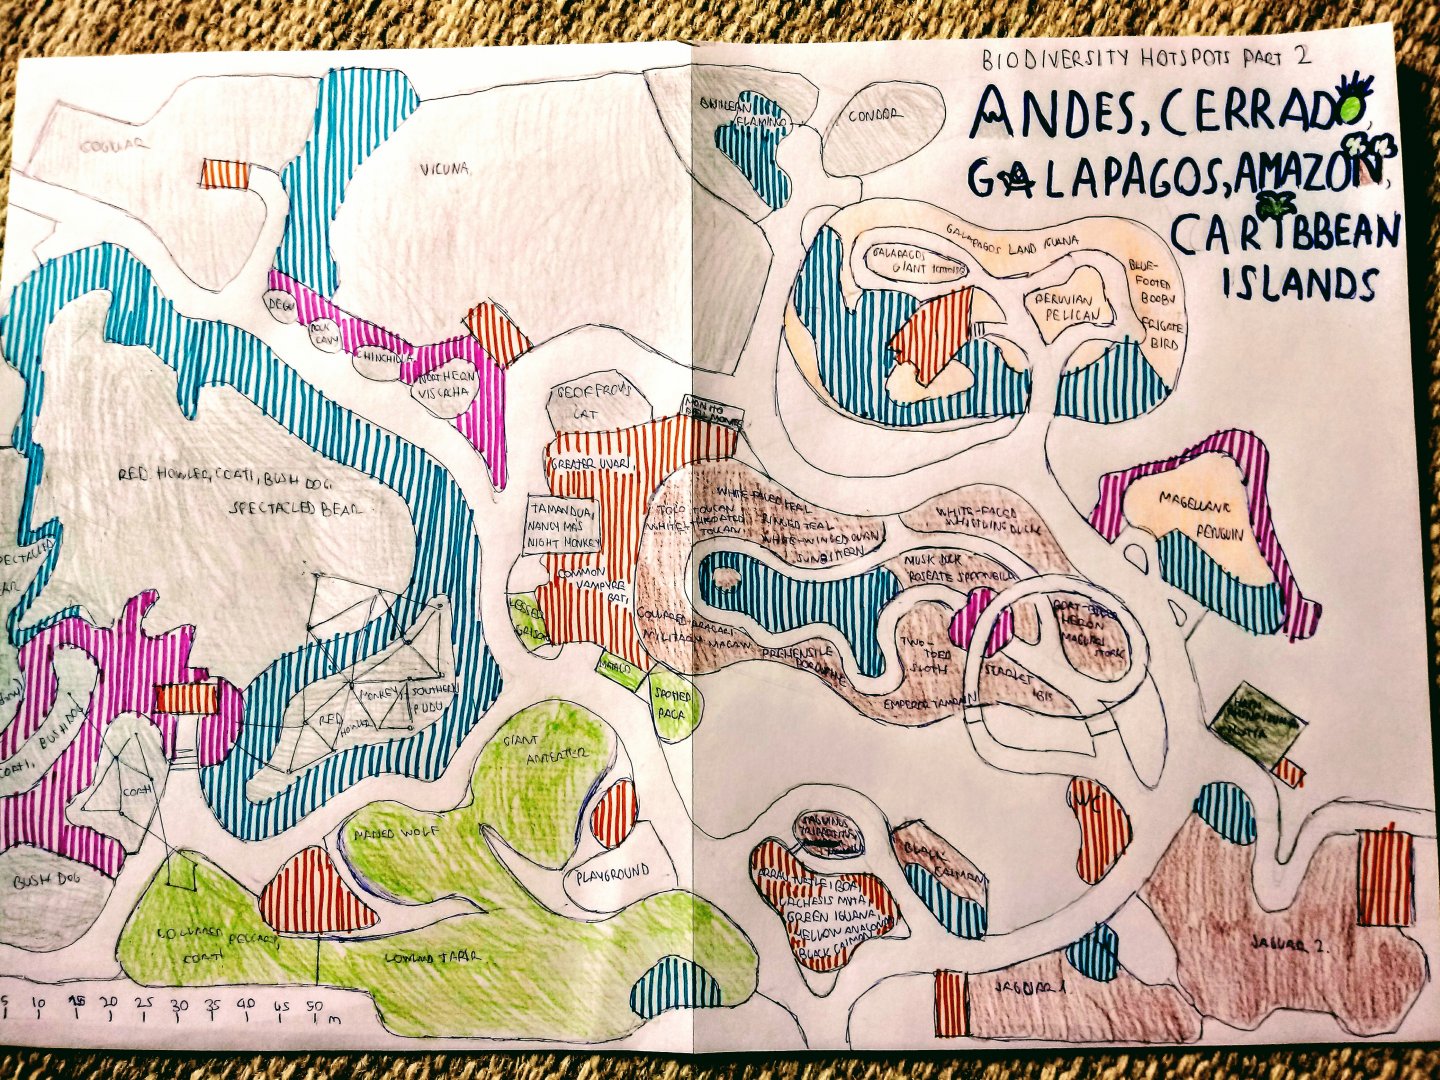 BIODIVERSITY HOTSPOTS PART 2
ANDES, CERRADO,
GALAPAGOS, AMAZON,
CARIBBEAN
ISLANDS
COUGUAR
VICUNA
FLAMINGO
CONDOR
GALAPAGOS LAND IGUANA
GALAPAGOS
GIANT TORTOISE
PERUVIAN
PELICAN
BLUE-
FOOTED
BOOBY
FRIGATE
BIRD
DEGU
CAVY
CHINCHILLA
NORTHERN
VISCACHA
GEOFFROY'S
CAT
MONITO
DEL MONTE
GREATER
TAMANDUA,
NANCY MA'S
NIGHT MONKEY
COMMON
VAMPYRE
BAT
LESSER
GRISON
SPOTTED
PACA
RED HOWLER, COATI, BUSH DOG
SPECTACLED BEAR
SPECTACLED
RED
HOWLER
MONKEY
SOUTHERN
PUDU
COATI, BUSH DOG
COATI
BUSH DOG
COLLARED PECCARY,
COATI
GIANT
ANTEATER
MANED WOLF
PLAYGROUND
LOWLAND TAPIR
TOCO TOUCAN
WHITE-THROATED
TOUCAN
WHITE-FACED TEAL
RINGED TEAL
WHITE-WINGED
SUNBITTERN
WHITE-FACED
WHISTLING DUCK
MUSK DUCK
ROSEATE SPOONBILL
BOAT-BILLED
HERON
MAGUARI
STORK
COLLARED ARACARI
MILITARY MACAW
PREHENSILE
PORCUPINE
TWO-
TOED
SLOTH
SCARLET
IBIS
EMPEROR TAMARIN
MAGELLANIC
PENGUIN
HUTIA
WC
BLACK
CAIMAN
LACHESIS MUTA,
GREEN IGUANA,
YELLOW ANACONDA
BLACK CAIMAN
JAGUAR 1.
JAGUAR 2.
5 10 15 20 25 30 35 40 45 50 m